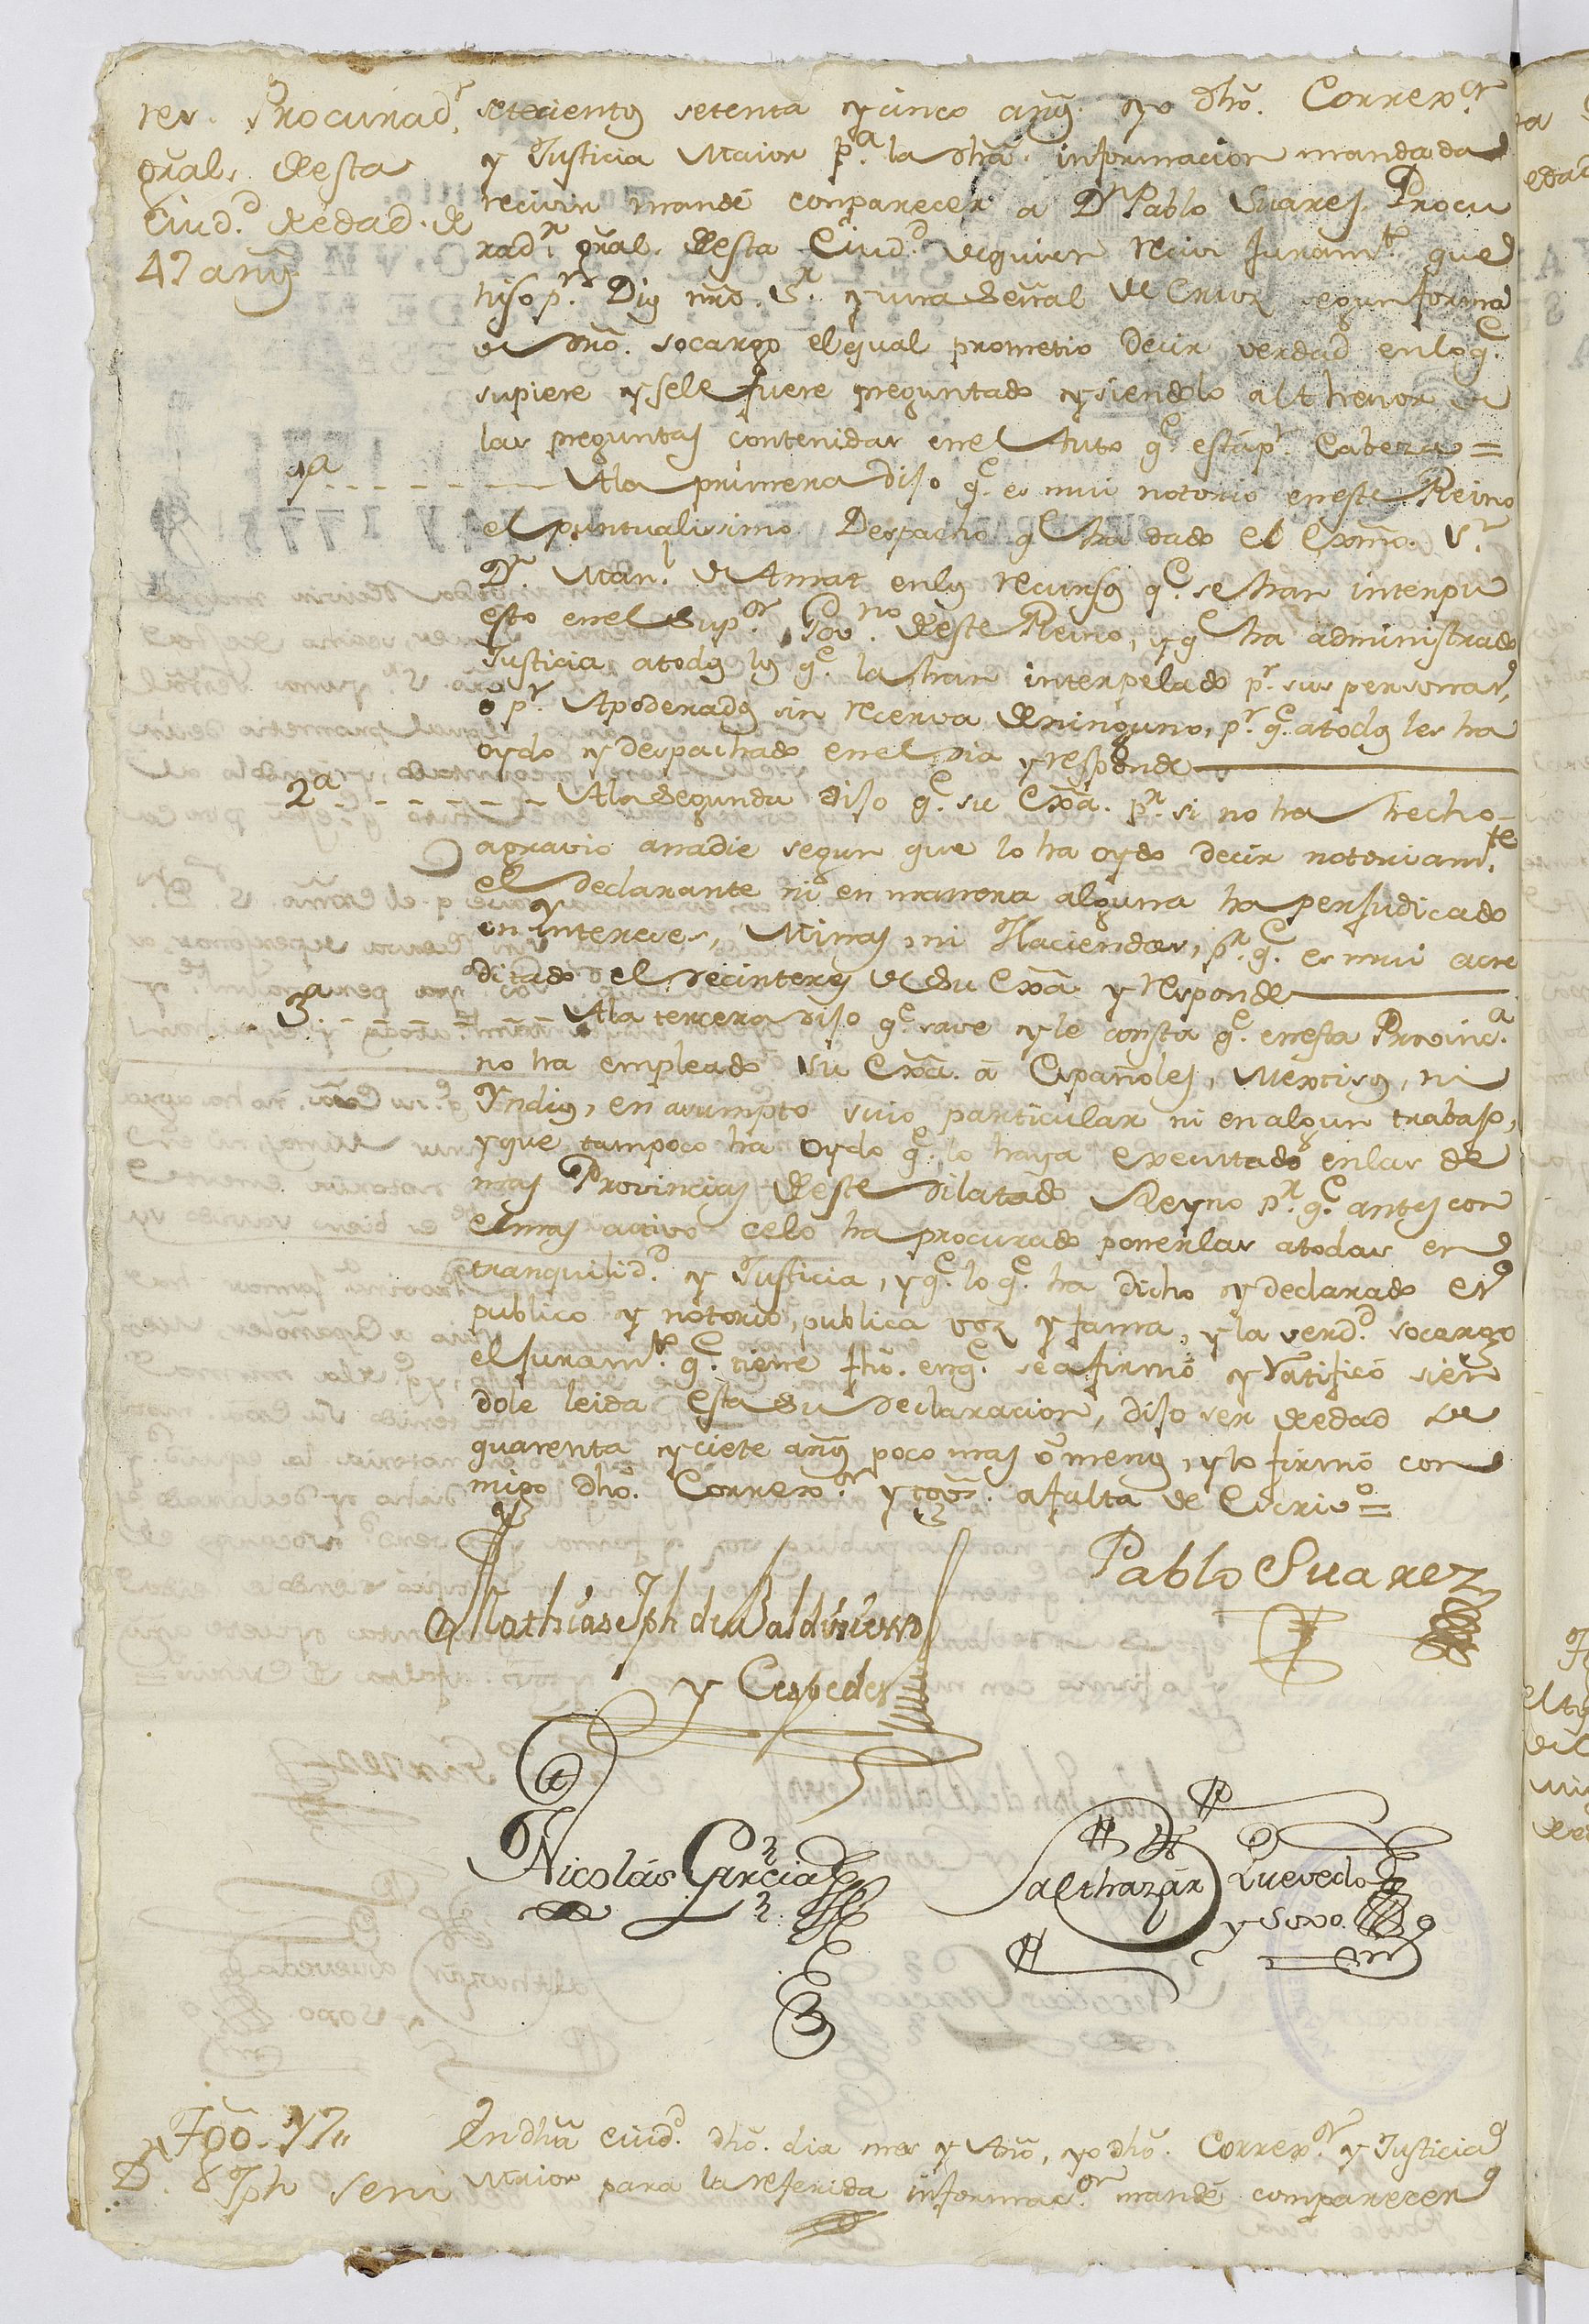 res. Procurad.r
gral. desta
Ciud.d de edad de
47 añs
setecientos setenta y cinco añs. yo dho. Correx.or
y Justicia Maior p.a la dha. informacion mandada
recivir mandé conparecer a D.n Pablo Suares Procu
rad.r gral. desta Ciud.d de quien recivi Juram.to que
hiso p.r Dios nro. S.r y una Señal de Cruz segun forma
de dro. socargo el qual prometio decir verdad en lo q.e
supiere y sele fuere preguntado y siendolo al thenor de
las preguntas contenidas en el Auto q.e está p.r Cabeza =
1a - - - - - - - Ala primera dijo q.e es mui notorio en este Reino
el puntualissimo Despacho q.e ha dado el Exmo. S.r
D.n Man.l de Amat en los recursos q.e se han interpu
esto en el Sup.or Gov.no deste Reino, y q.e ha administrado
Justicia atodos los q.e la han interpelado p.r sus personas,
o p.r Apoderados sin recerva de ninguno, p.r q.e atodos les ha
oydo y despachado en el dia y responde
2a - - - - - - - Ala Segunda dijo q.e su Exa. p.r si no ha hecho
agravio anadie segun que lo ha oydo decir notoriam.te
el declarante ni en manera alguna ha perjudicado
en intereces, Minas, ni Haciendas, p.r q.e es mui acre
ditado el decinteres de Su Exa. y responde
3a - - - - - - - Ala tercera dijo q.e save y le consta q.e en esta Provinc.a
no ha empleado Su Exa. a Españoles, Mextisos, ni
Yndios, en asumpto suio particular ni en algun trabajo,
y que tampoco ha oydo q.e lo haya executado en las de
mas Provincias deste dilatado Reyno p.r q.e antes con
el mas activo celo ha procurado ponerlas atodas en
tranquilid.d y Justicia, y q.e lo q.e ha dicho y declarado es
publico y notorio, publica voz y fama, y la verd.d socargo
el juram.to q.e tiene fho. en q.e se afirmó y ratificó sien
dole leida esta Su declaracion, dijo ser de edad de
quarenta y ciete añs poco mas o menos, y lo firmó con
migo dho. Correx.or y tgos. afalta de Escriv.o =
Pablo Suarez
Mathias Jph de Baldivieso
y Cespedes
Nicolás Garcia
Balthazár Quevedo
y Soxo.
Tgo. 17
D.n Jph Seni
En dha Ciud.d dho. dia mes y Año, yo dho. Correx.or y Justicia
Maior para la referida informac.on mandé comparecer